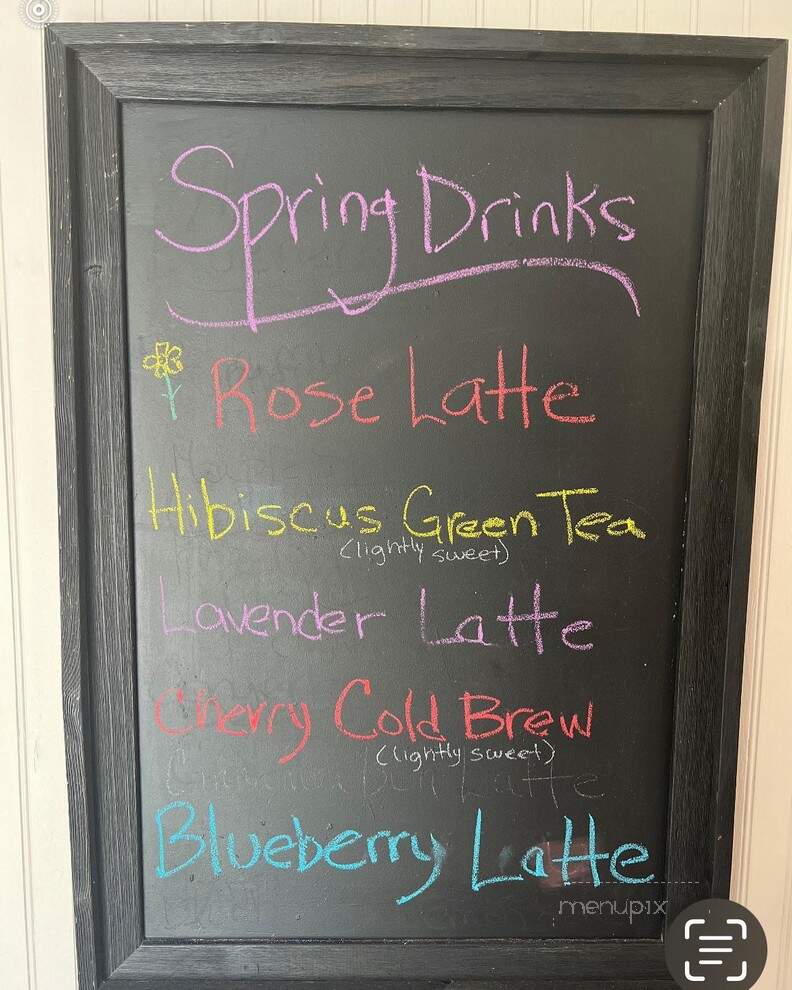 Spring Drinks
Rose Latte
Hibiscus Green Tea
(lightly sweet)
Lavender Latte
Cherry Cold Brew
(lightly sweet)
Blueberry Latte
menupix